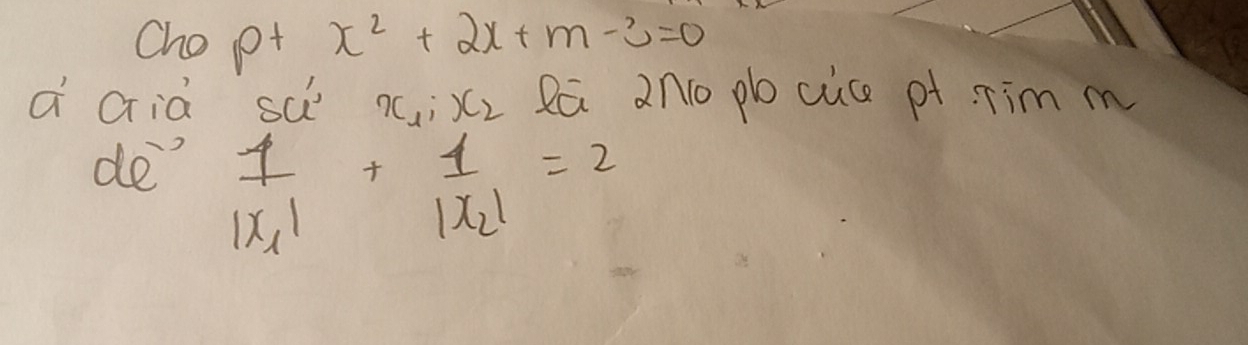 Cho pt x² + 2x + m - 3 = 0
a' Giả sử x₁; x₂ là 2No pb của pt. Tìm m
để 1/|x₁| + 1/|x₂| = 2